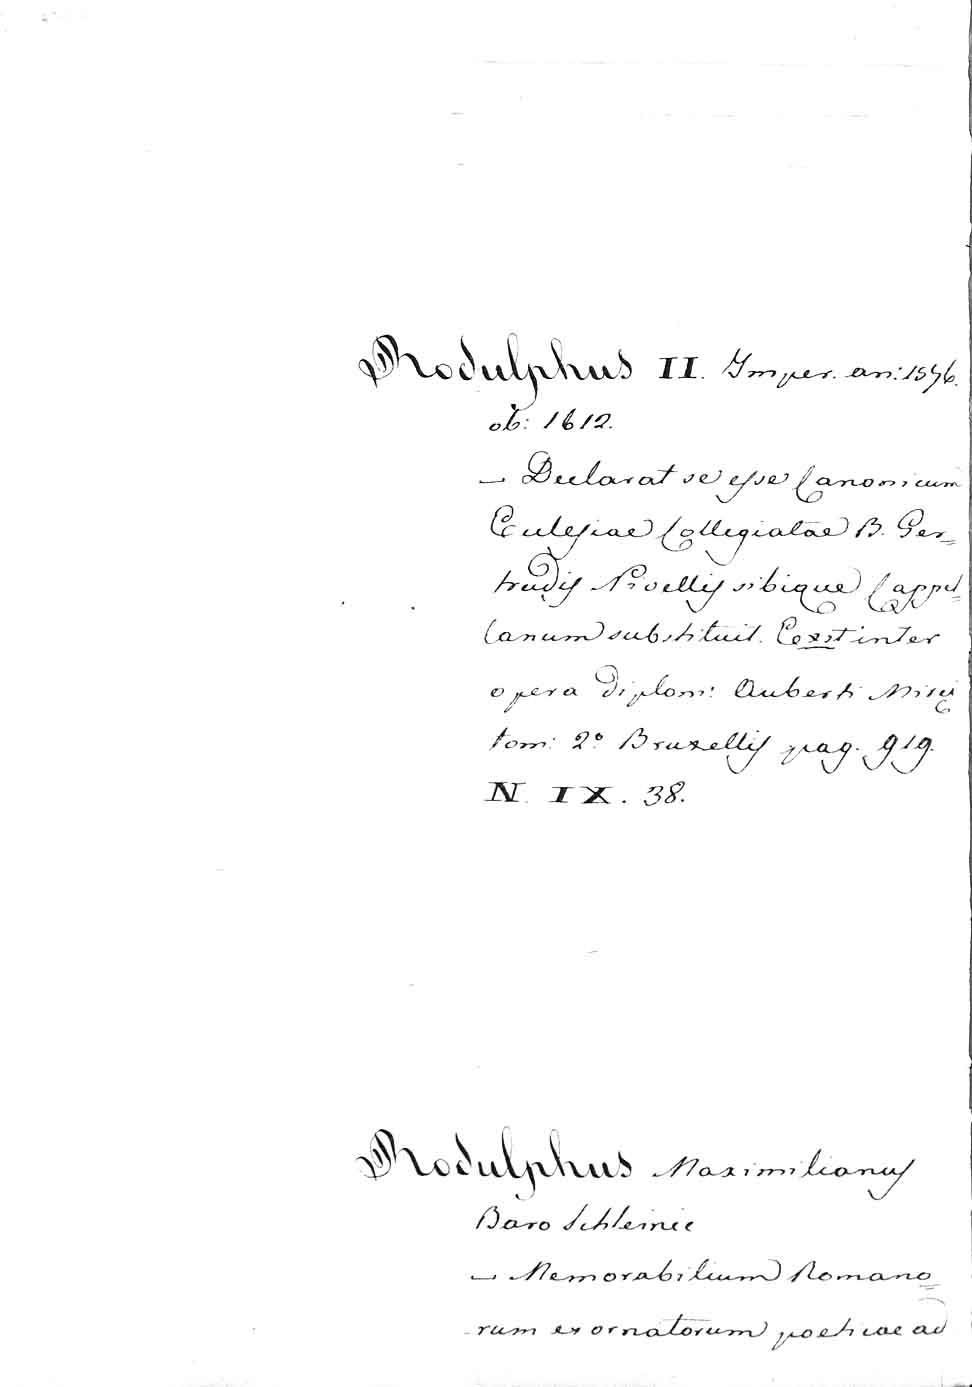 Rodulphus II. Imper. an: 1576.
ob: 1612.
— Declarat se esse Canonicum
Ecclesiae Collegiatae B. Ger=
trudis Nivellis sibique Cappel=
lanum substituit. Exst inter
opera diplom: Auberti Miraei
tom: 2º Bruxellis pag. 919.
N. IX. 38.
Rodulphus Maximilianus
Baro Schleinic
— Memorabilium Romano=
rum exornatorum poeticae ad